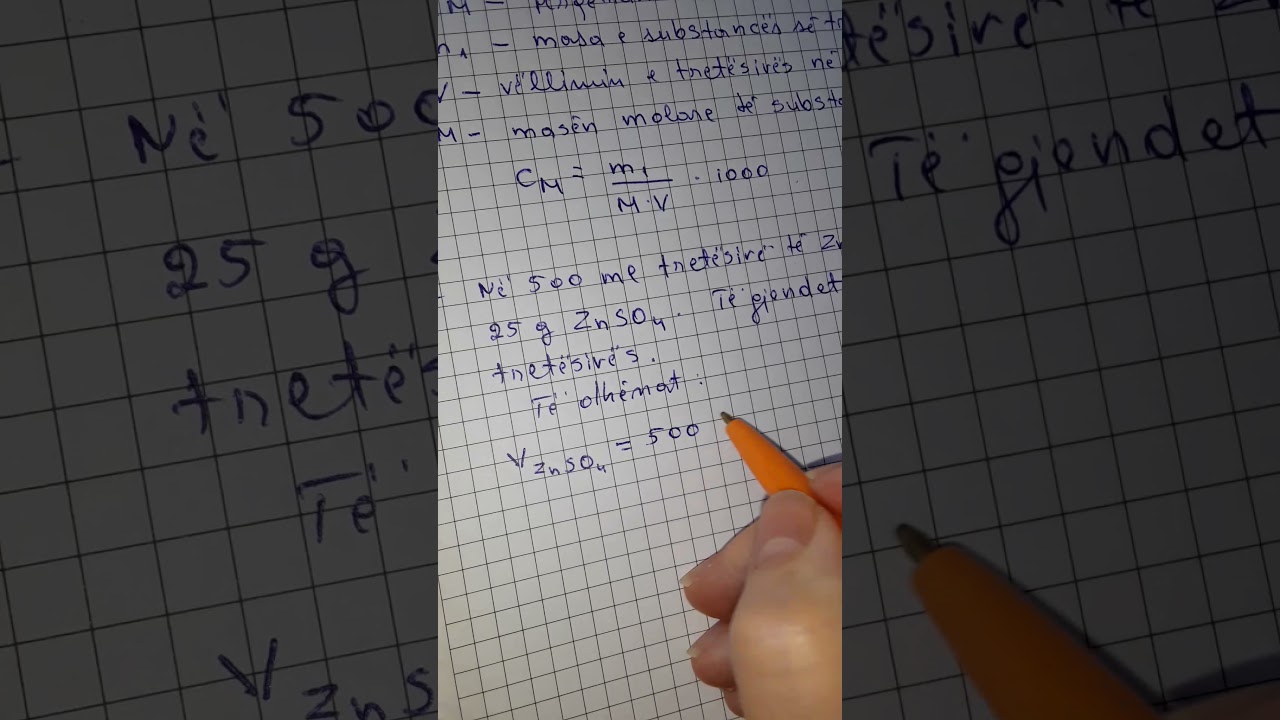 M –
– masa e substancës së
V – vëllimin e tretësirës në
M – masën molare të
C_M = m₁ / M·V · 1000
Në 500 ml tretësirë të Zn
25 g ZnSO₄. Të gjendet
tretësirës.
Të dhënat:
V ZnSO₄ = 500